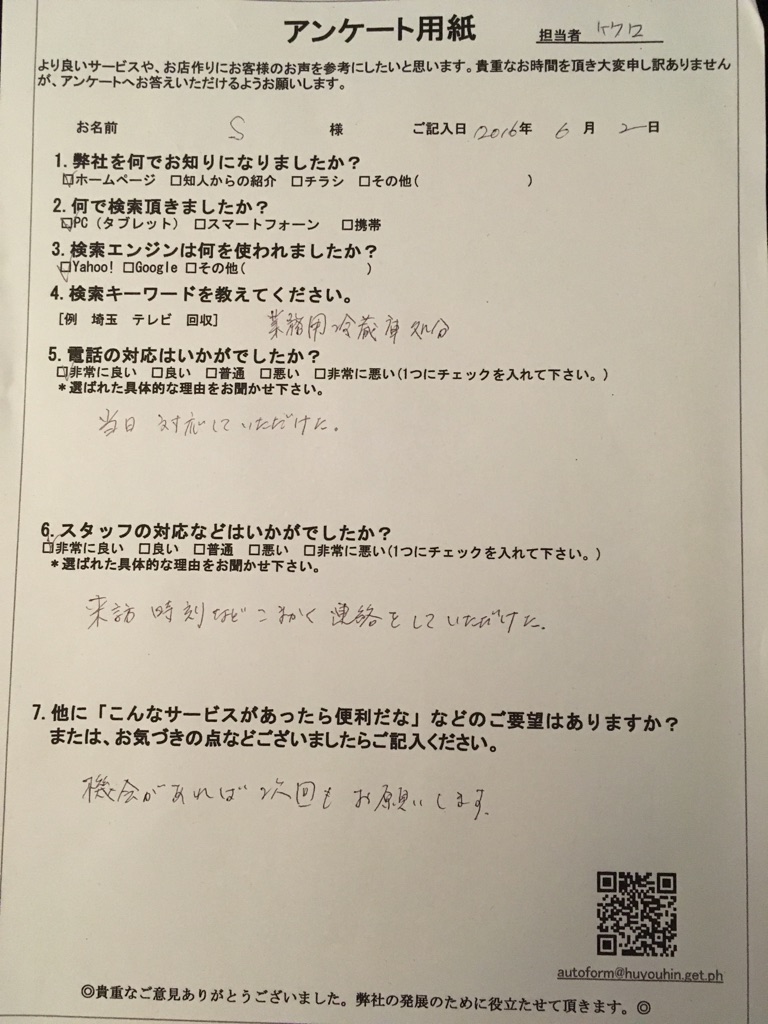 アンケート用紙
担当者
より良いサービスや、お店作りにお客様のお声を参考にしたいと思います。貴重なお時間を頂き大変申し訳ありません
が、アンケートへお答えいただけるようお願いします。
お名前 S 様 ご記入日 2016年 6 月 2 日
1. 弊社を何でお知りになりましたか?
☑ホームページ □知人からの紹介 □チラシ □その他( )
2. 何で検索頂きましたか?
☑PC(タブレット) □スマートフォーン □携帯
3. 検索エンジンは何を使われましたか?
☑Yahoo! □Google □その他( )
4. 検索キーワードを教えてください。
[例 埼玉 テレビ 回収] 業務用冷蔵庫 処分
5. 電話の対応はいかがでしたか?
☑非常に良い □良い □普通 □悪い □非常に悪い(1つにチェックを入れて下さい。)
*選ばれた具体的な理由をお聞かせ下さい。
当日 対応していただけた。
6. スタッフの対応などはいかがでしたか?
☑非常に良い □良い □普通 □悪い □非常に悪い(1つにチェックを入れて下さい。)
*選ばれた具体的な理由をお聞かせ下さい。
来訪 時刻など こまかく 連絡をしていただけた。
7. 他に「こんなサービスがあったら便利だな」などのご要望はありますか?
または、お気づきの点などございましたらご記入ください。
機会があれば 次回も お願いします。
autoform@huyouhin.get.ph
◎貴重なご意見ありがとうございました。弊社の発展のために役立たせて頂きます。◎